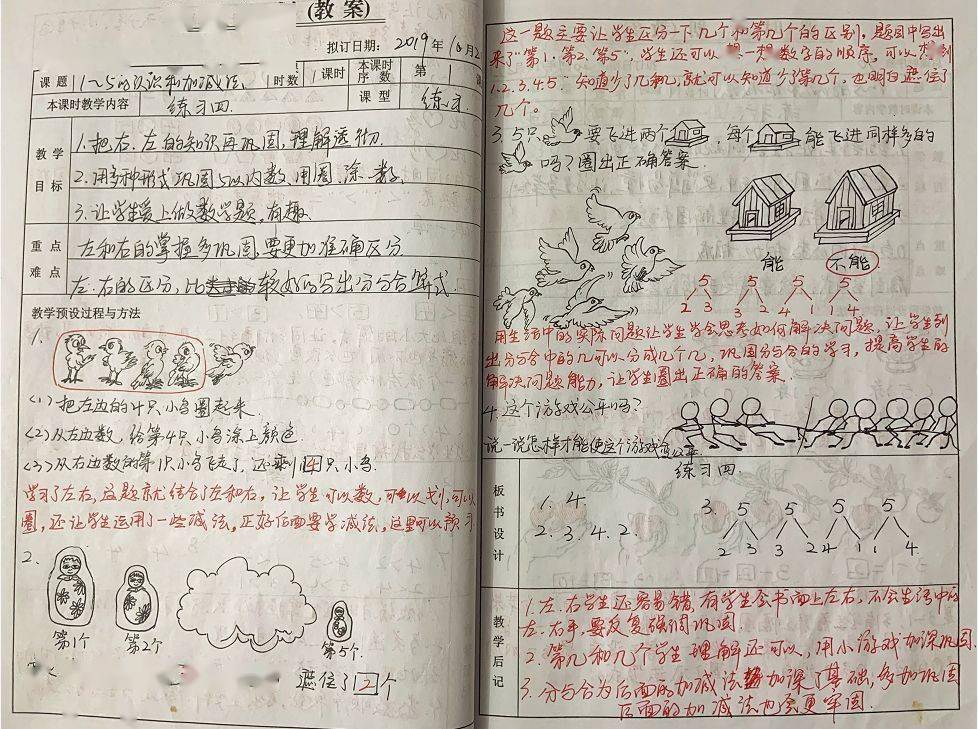 (教案)
拟订日期： 2019年10月2
课题 1～5的认识和加减法 时数 1课时 本课时序数 第1
本课时教学内容 练习四. 课型 练习.
教学目标
1.把右、左的知识再巩固，理解透彻.
2.用多种形式巩固5以内数，用圈、涂、数.
3.让学生爱上做数学题，有趣.
重点 左和右的掌握多巩固，要更加准确区分
难点 左、右的区分，比较好的写出分与合算式.
教学预设过程与方法
1.
(1)把左边的4只小鸟圈起来.
(2)从左边数，给第4只小鸟涂上颜色.
(3)从右边数的第1只小鸟飞走了，还剩4只小鸟.
学习了左右，这题就结合了左和右，让学生可以数，可以划，可以
圈，还让学生运用了一些减法，正好后面要学减法，这里可以预习
2.
第1个 第2个 第5个.
遮住了2个
这一题主要让学生区分一下几个和第几个的区别，题目中写出
来了"第1、第2、第5"，学生还可以 一 数字的顺序，可以
1.2.3.4.5. 知道少了几和几就可以知道少了第几个，也明白遮住了
几个。
3.5只 要飞进两个 ，每个 能飞进同样多的
吗？圈出正确答案.
能 不能
5 5 5 5
2 3 3 2 4 1 1 4
用生活中的实际问题让学生学会思考如何解决问题，让学生列
出分与合中的几可以分成几个几，巩固分与合的学习，提高学生的
解决问题能力，让学生圈出正确的答案.
4.这个游戏公平吗？
说一说怎样才能使这个游戏变公平.
板书设计
练习四
1. 4. 3. 5 5 5 5
2. 3. 4. 2. 2 3 3 2 4 1 1 4.
教学后记
1.左、右学生还容易错，有学生会书面上左右，不会生活中的
左、右手，要反复强调巩固.
2.第几和几个学生理解还可以，用小游戏加深巩固.
3.分与合为后面的加减法加深了基础，多加巩固
后面的加减法力会更牢固.